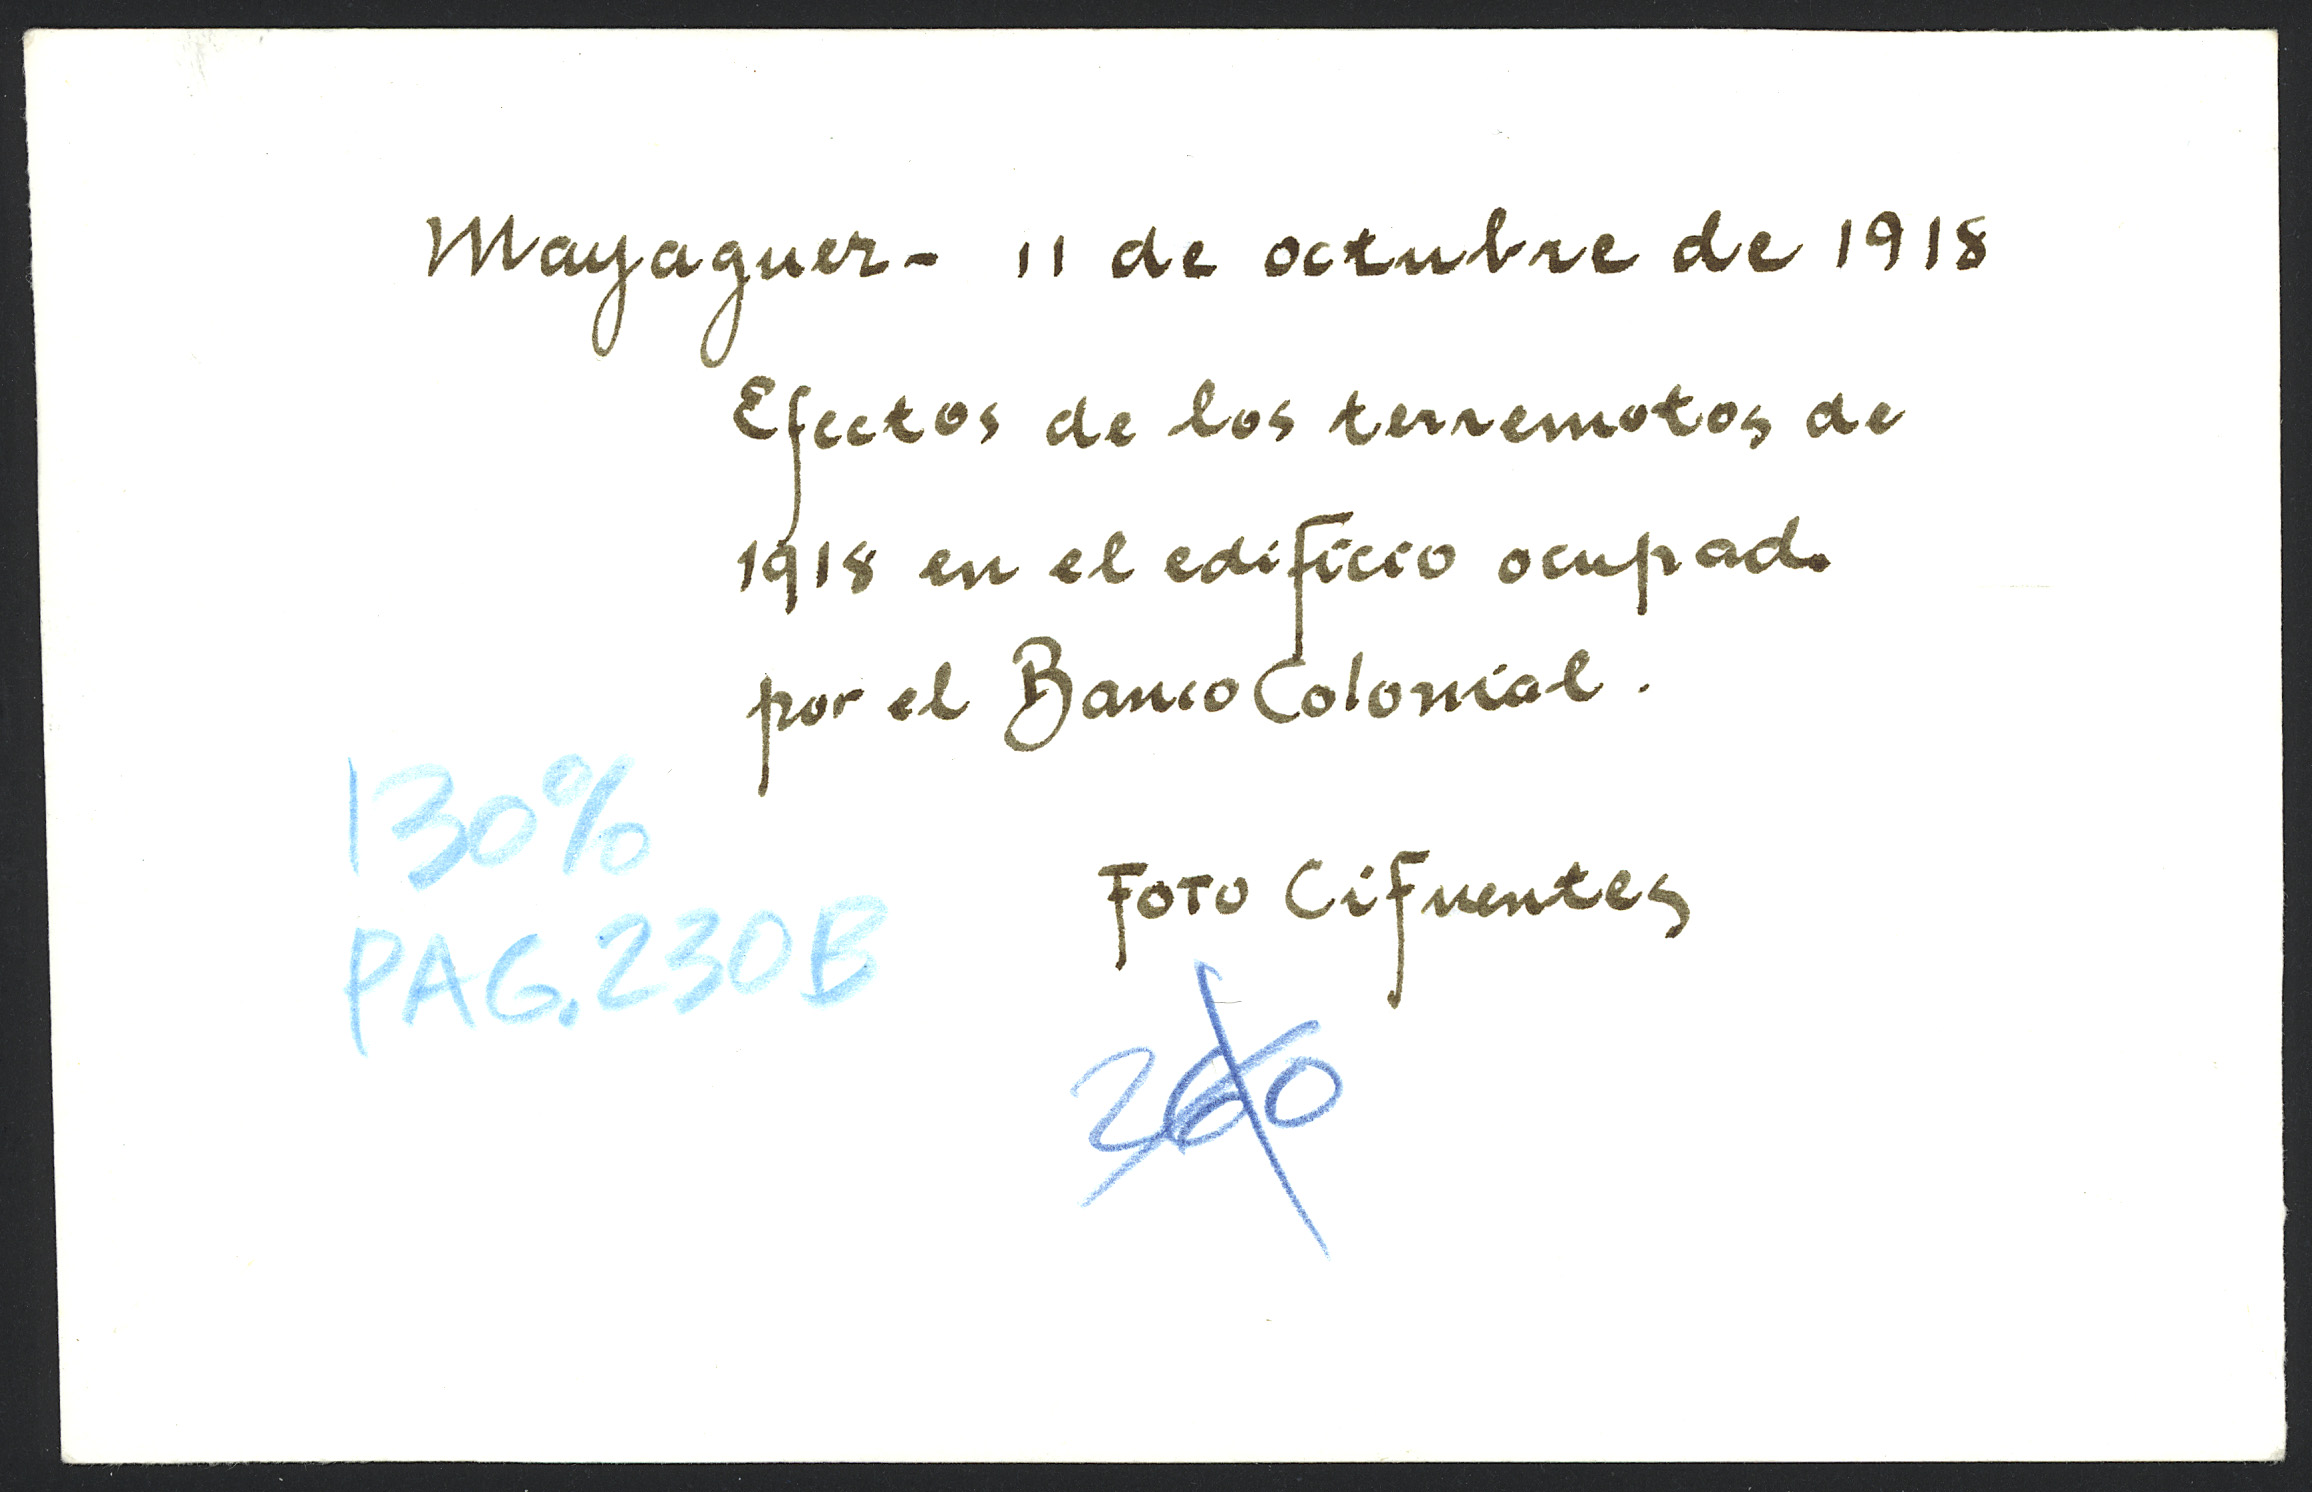 Mayaguez - 11 de octubre de 1918
Efectos de los terremotos de
1918 en el edificio ocupado
por el Banco Colonial.
130%
PAG. 230B
Foto Cifuentes
260